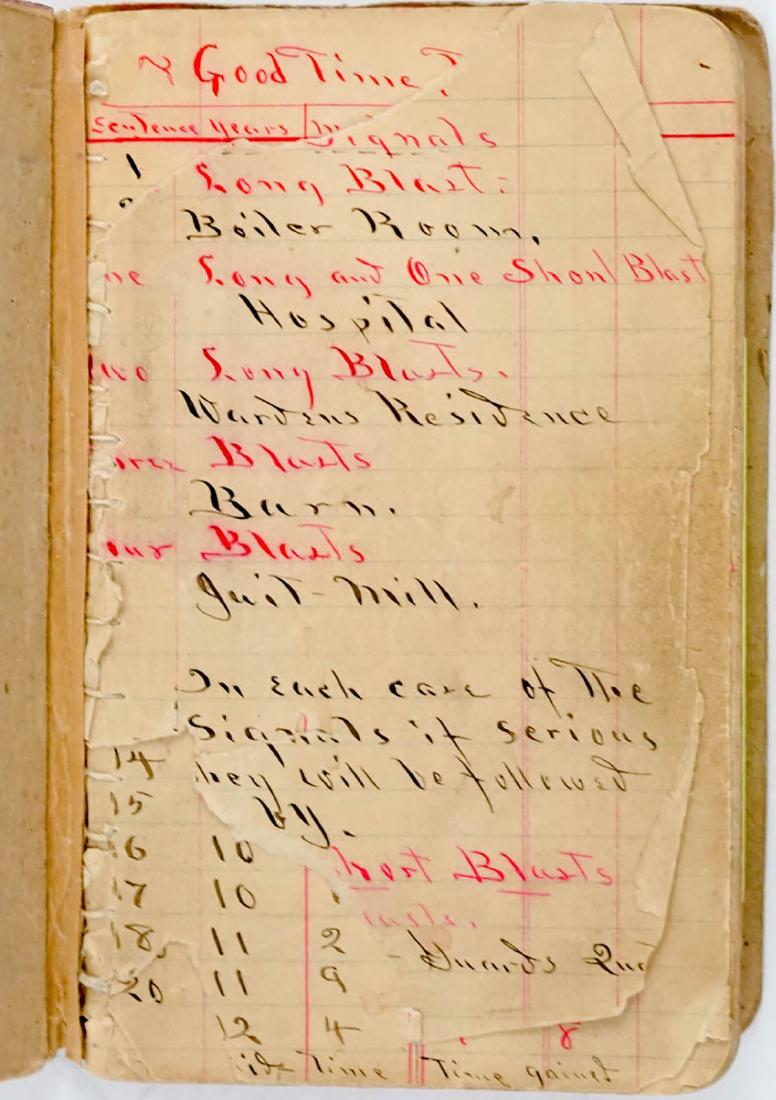 Good Time.
Sentence Years Signals
1 Long Blast:
Boiler Room.
ne Long and One Short Blast
Hospital
wo Long Blasts.
Wardens Residence
Blasts
Barn.
our Blasts
Juit-Mill.
In each case of the
Signals if serious
hey will be followed
14
15 by.
16 10 hort Blasts
17 10
18 11 2 asts.
- Guards
20 11 9
12 4 8
Time Time gained